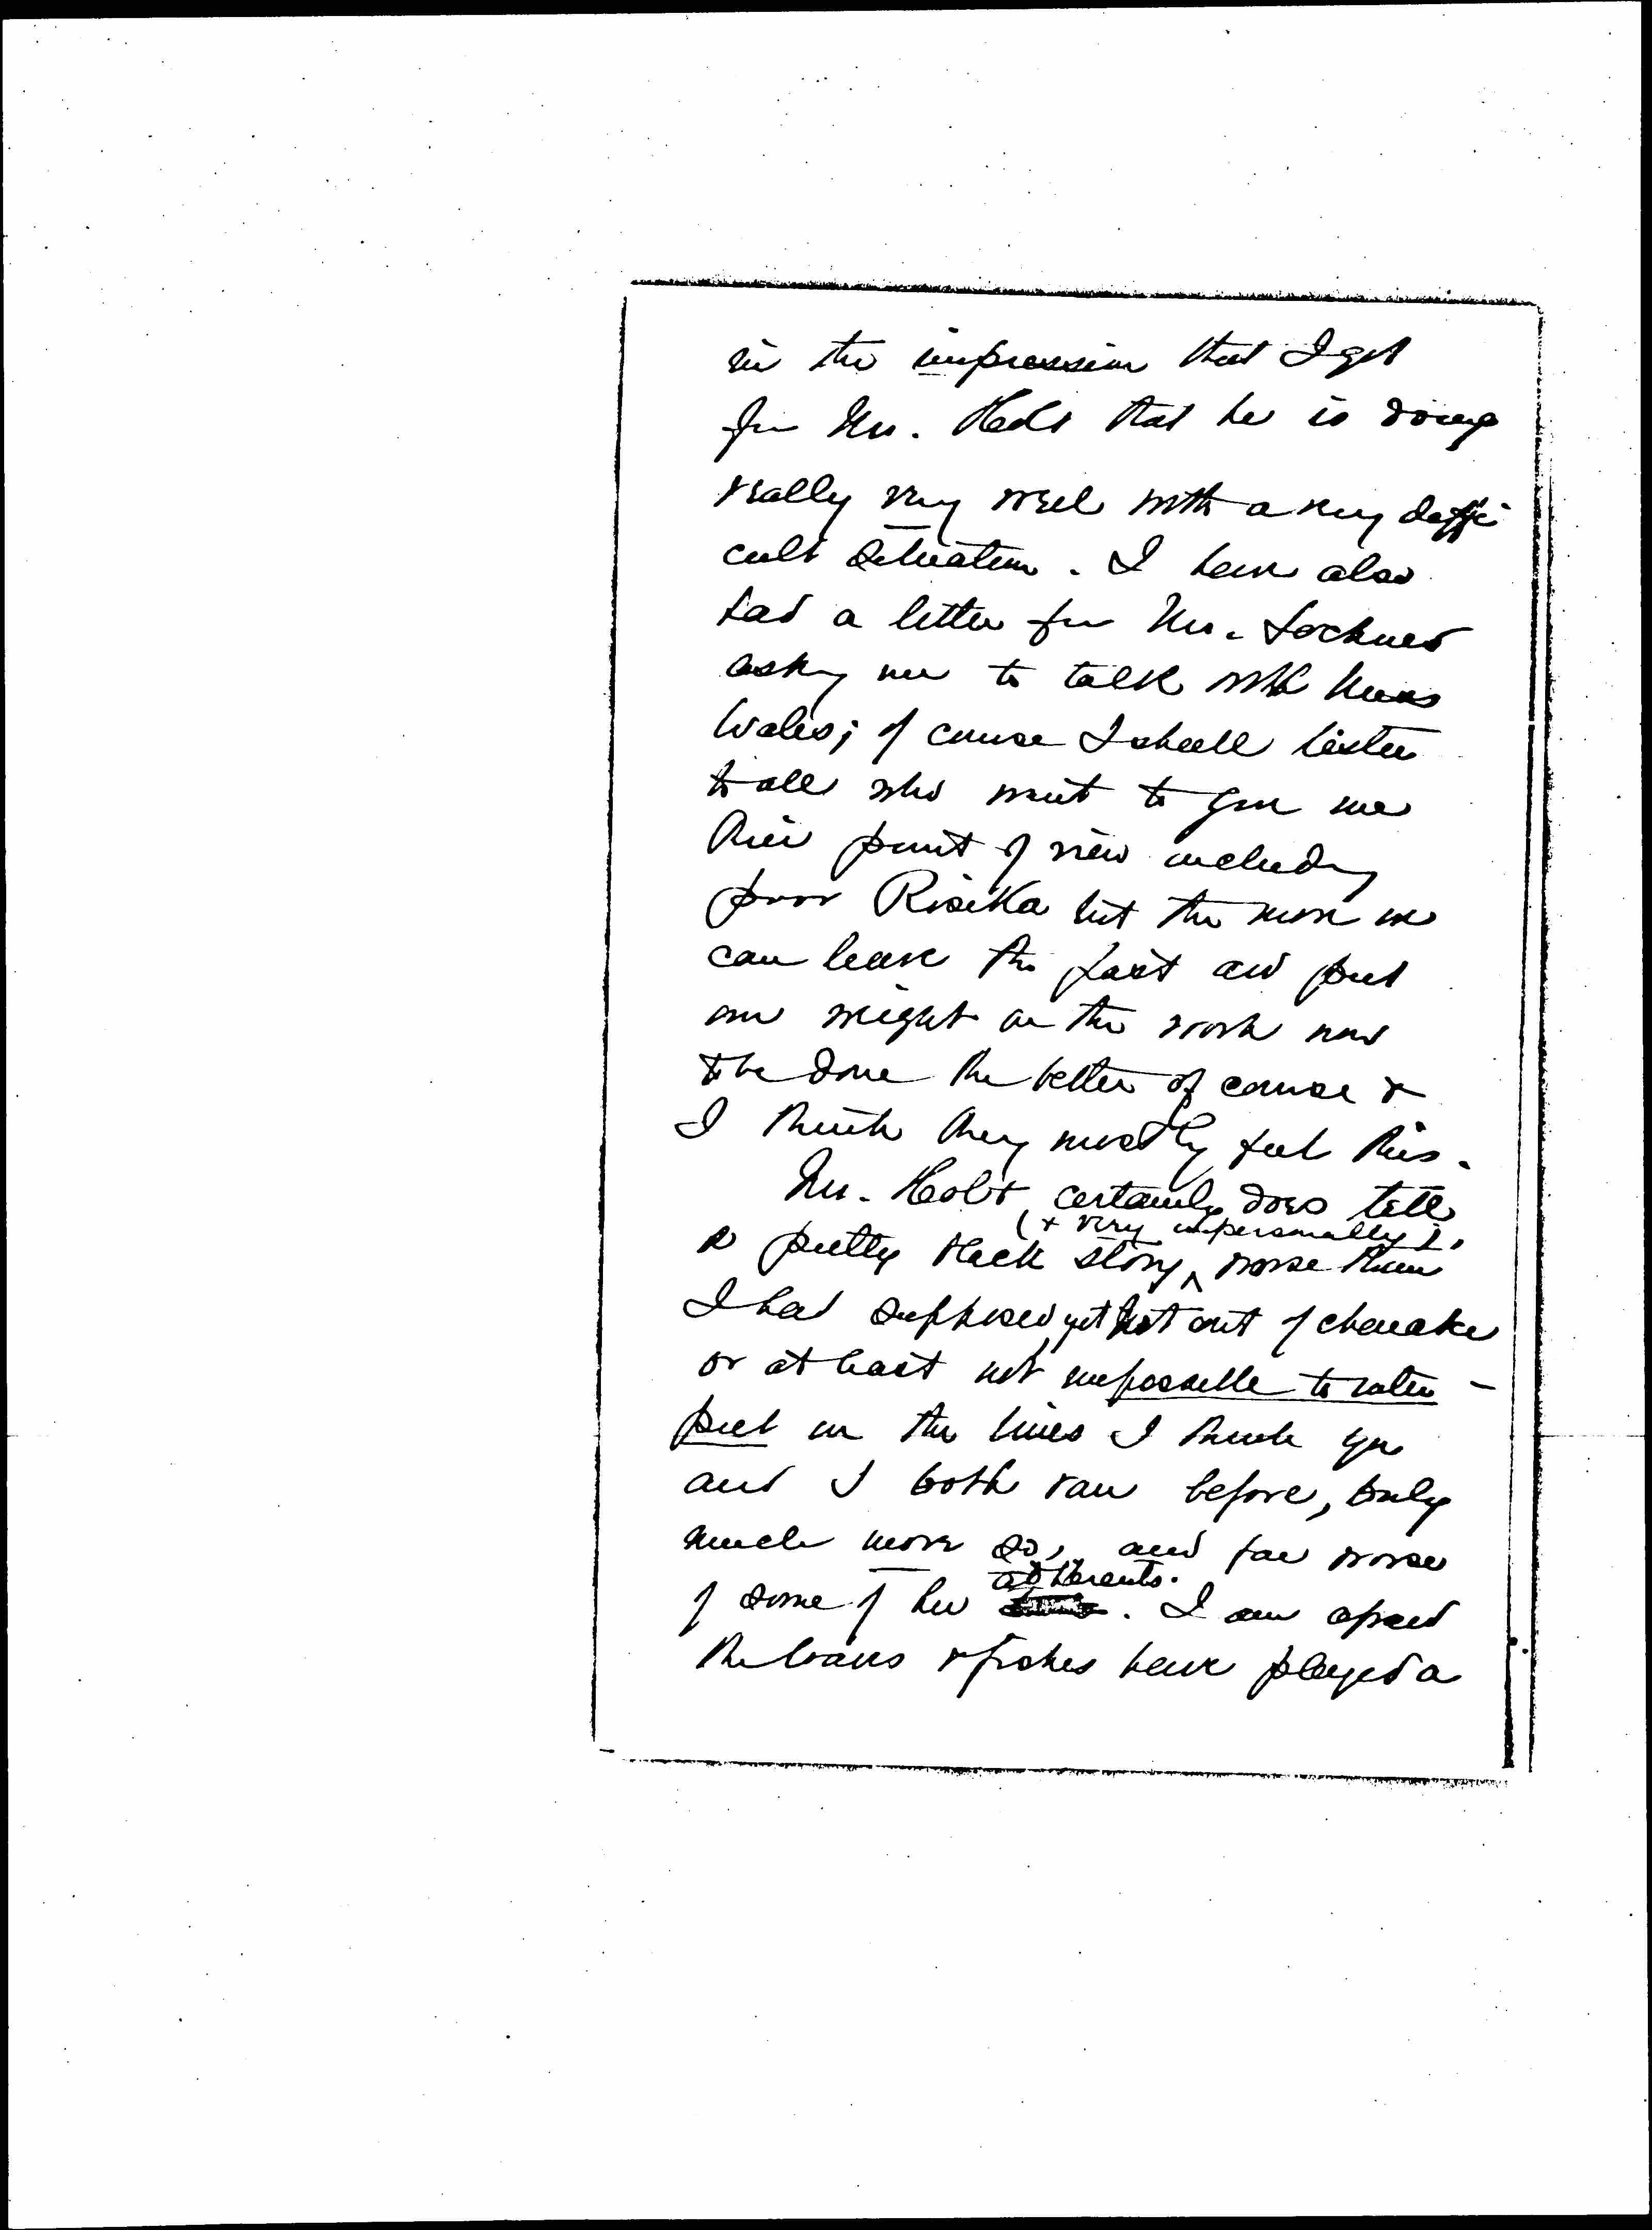 in the impression that I get
from Mr. Holt that he is doing
really very well with a very diffi
cult situation. I have also
had a letter from Mr. Lochner
asking me to talk with Miss
Wales; of course I shall listen
to all who want to give me
their point of view including
poor Rosika but the more we
can leave the past and put
our weight on the work now
to be done the better of course &
I think they mostly feel this.
Mr. Holt certainly does tell
a pretty black story (& very impersonally), worse than
I had supposed yet not out of character
or at least not impossible to inter-
pret on the lines I think you
and I both saw before, only
much more so, and far worse
of some of her adherents. I am afraid
the have played a